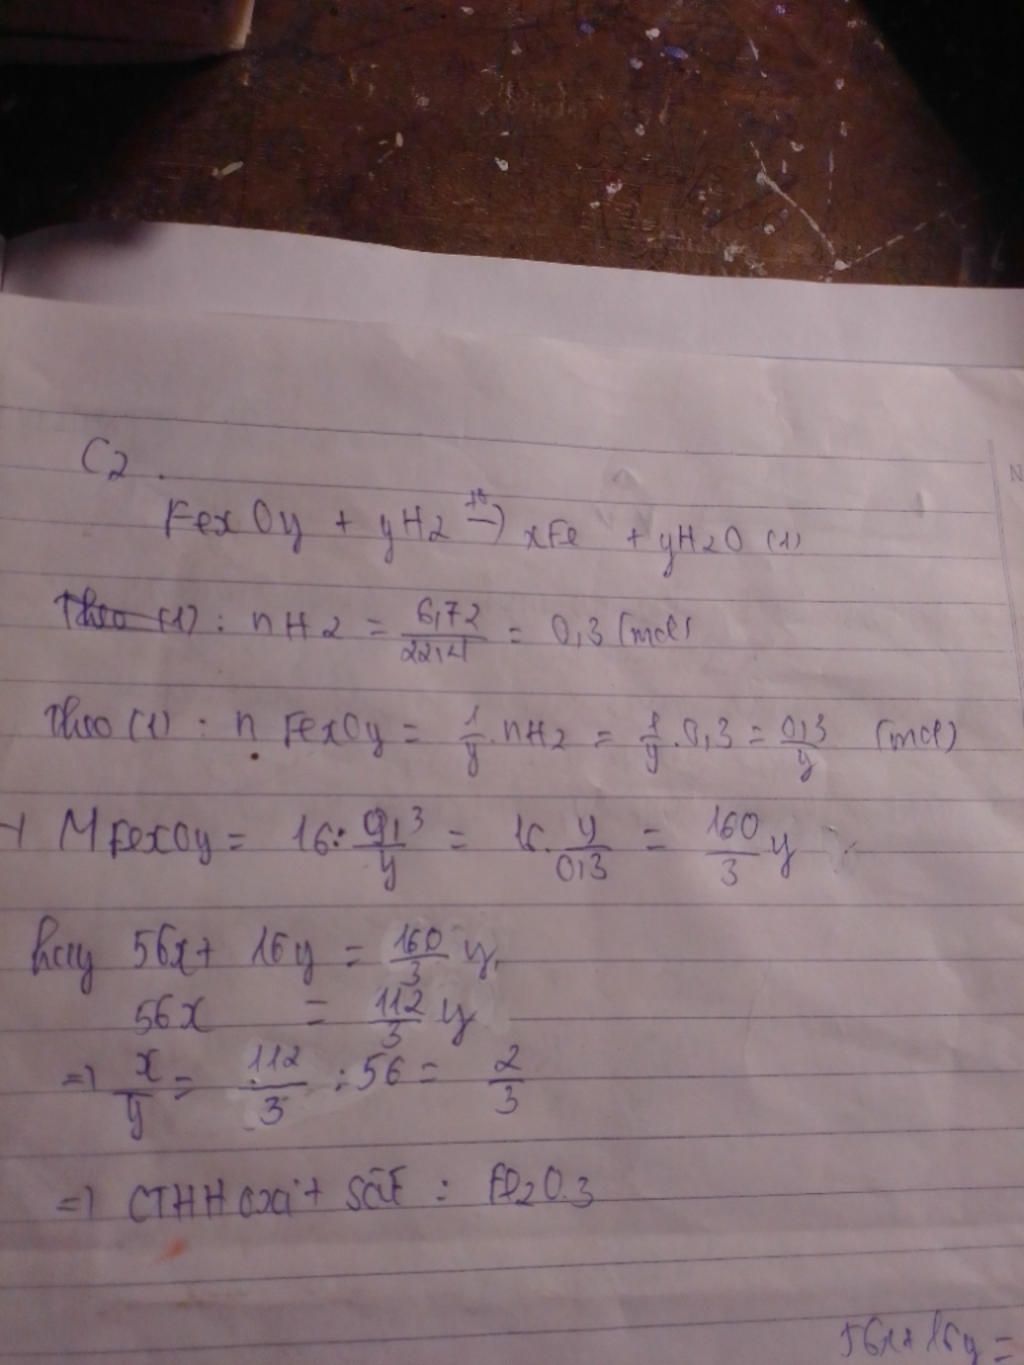 C2.
FexOy + yH2 t° → xFe + yH2O (1)
Theo (1) : nH2 = 6,72/22,4 = 0,3 (mol)
Theo (1) : n FexOy = 1/y . nH2 = 1/y . 0,3 = 0,3/y (mol)
→ MFexOy = 16 : 0,3/y = 16 . y/0,3 = 160/3 y
hay 56x + 16y = 160/3 y
56x = 112/3 y
=> x/y = 112/3 : 56 = 2/3
=> CTHH oxit sắt : Fe2O3
56x + 16y =
N